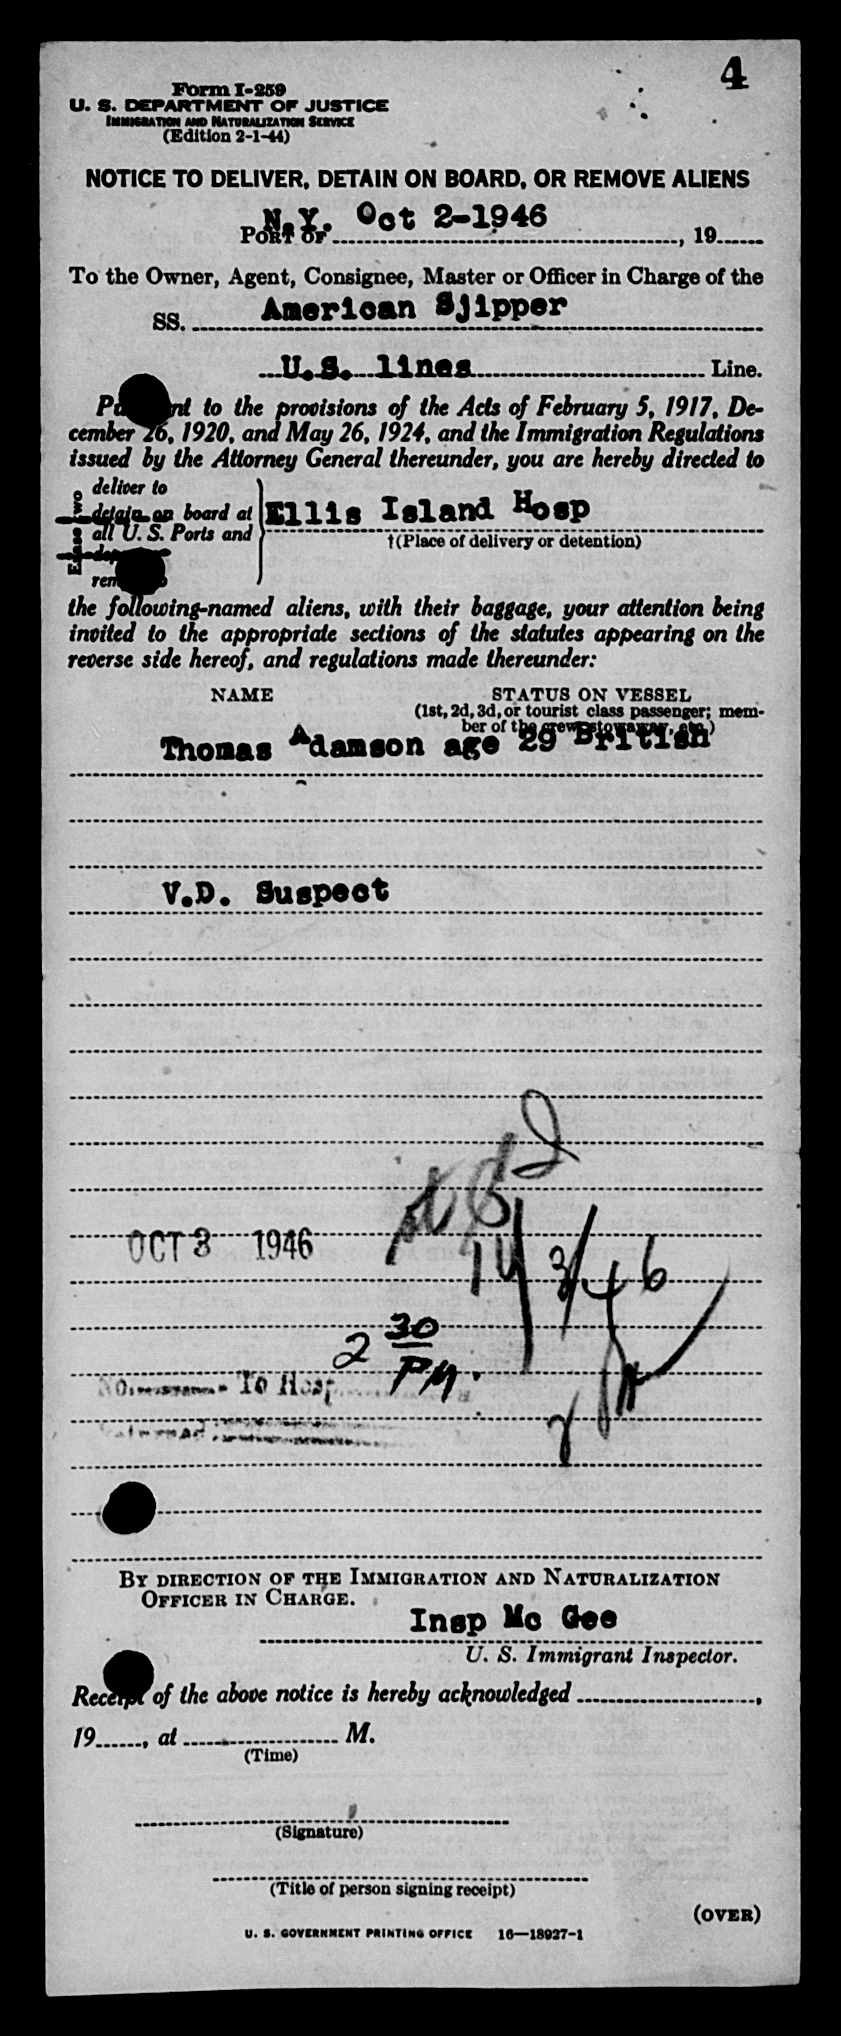 4
Form I-259
U. S. DEPARTMENT OF JUSTICE
IMMIGRATION AND NATURALIZATION SERVICE
(Edition 2-1-44)
NOTICE TO DELIVER, DETAIN ON BOARD, OR REMOVE ALIENS
N.Y. Oct 2-1946
PORT OF , 19
To the Owner, Agent, Consignee, Master or Officer in Charge of the
SS. American Sjipper
U.S. lines Line.
Pu nt to the provisions of the Acts of February 5, 1917, De-
cember 26, 1920, and May 26, 1924, and the Immigration Regulations
issued by the Attorney General thereunder, you are hereby directed to
deliver to
detain on board at Ellis Island Hosp
all U. S. Ports and †(Place of delivery or detention)
the following-named aliens, with their baggage, your attention being
invited to the appropriate sections of the statutes appearing on the
reverse side hereof, and regulations made thereunder:
NAME STATUS ON VESSEL
(1st, 2d, 3d, or tourist class passenger; mem-
ber of the crew, stowaway, etc.)
Thomas Adamson age 29 British
V.D. Suspect
OCT 3 1946
3/46
2 30
PM.
To Hosp
BY DIRECTION OF THE IMMIGRATION AND NATURALIZATION
OFFICER IN CHARGE.
Insp Mc Gee
U. S. Immigrant Inspector.
Receipt of the above notice is hereby acknowledged ,
19 , at M.
(Time)
(Signature)
(Title of person signing receipt)
(OVER)
U. S. GOVERNMENT PRINTING OFFICE 16—18927-1